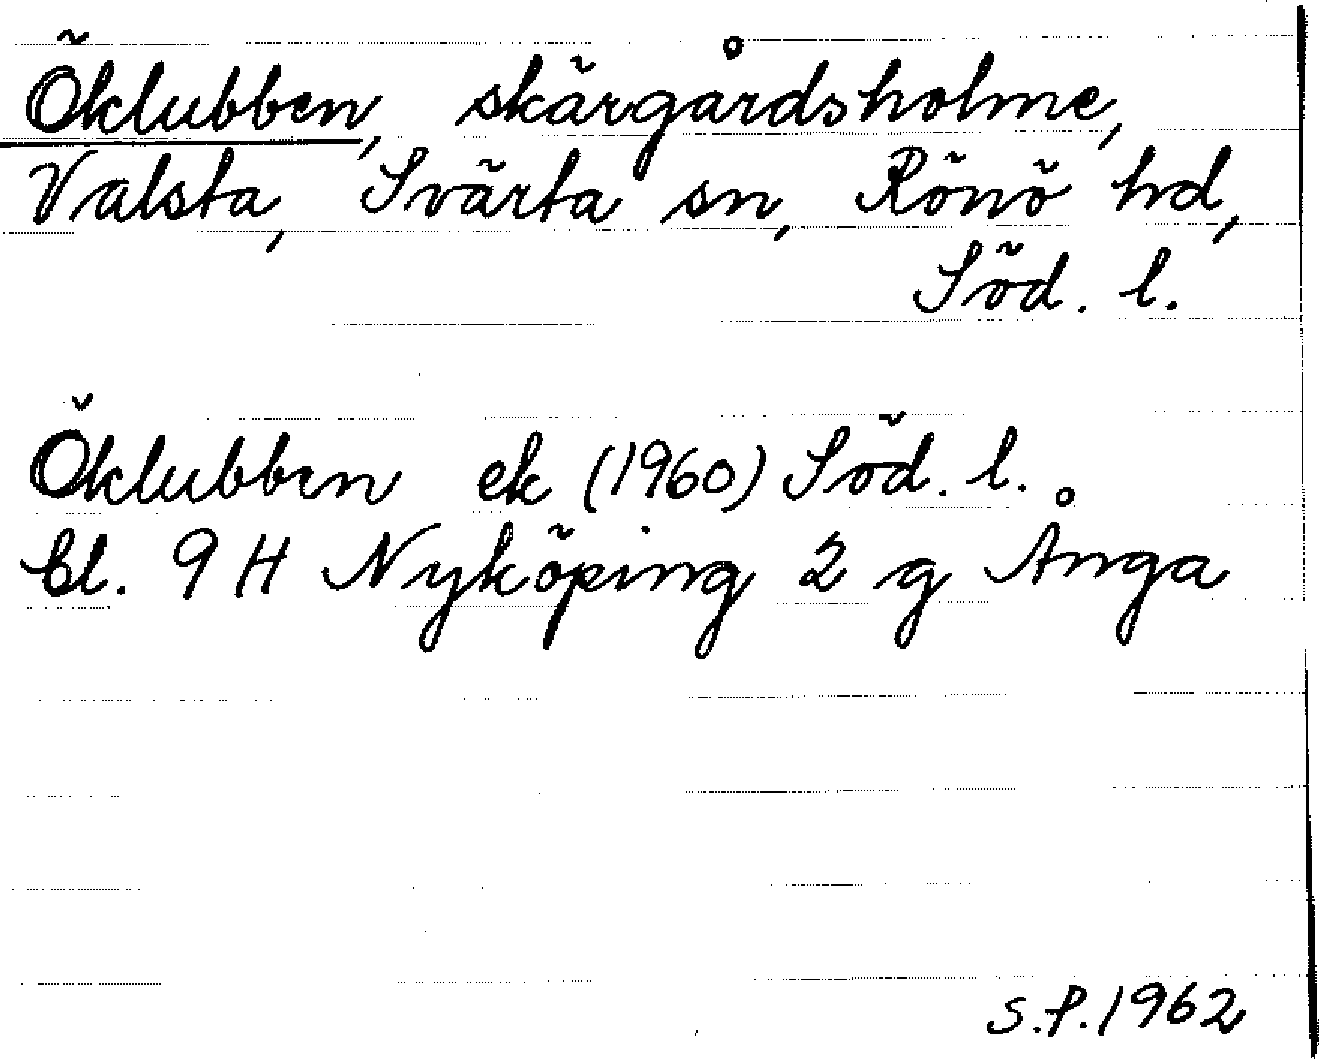 Öklubben, skärgårdsholme,
Valsta, Svärta sn, Rönö hd,
Söd. l.
Öklubben ek (1960) Söd. l.
bl. 9 H Nyköping 2 g Ånga
S.P. 1962